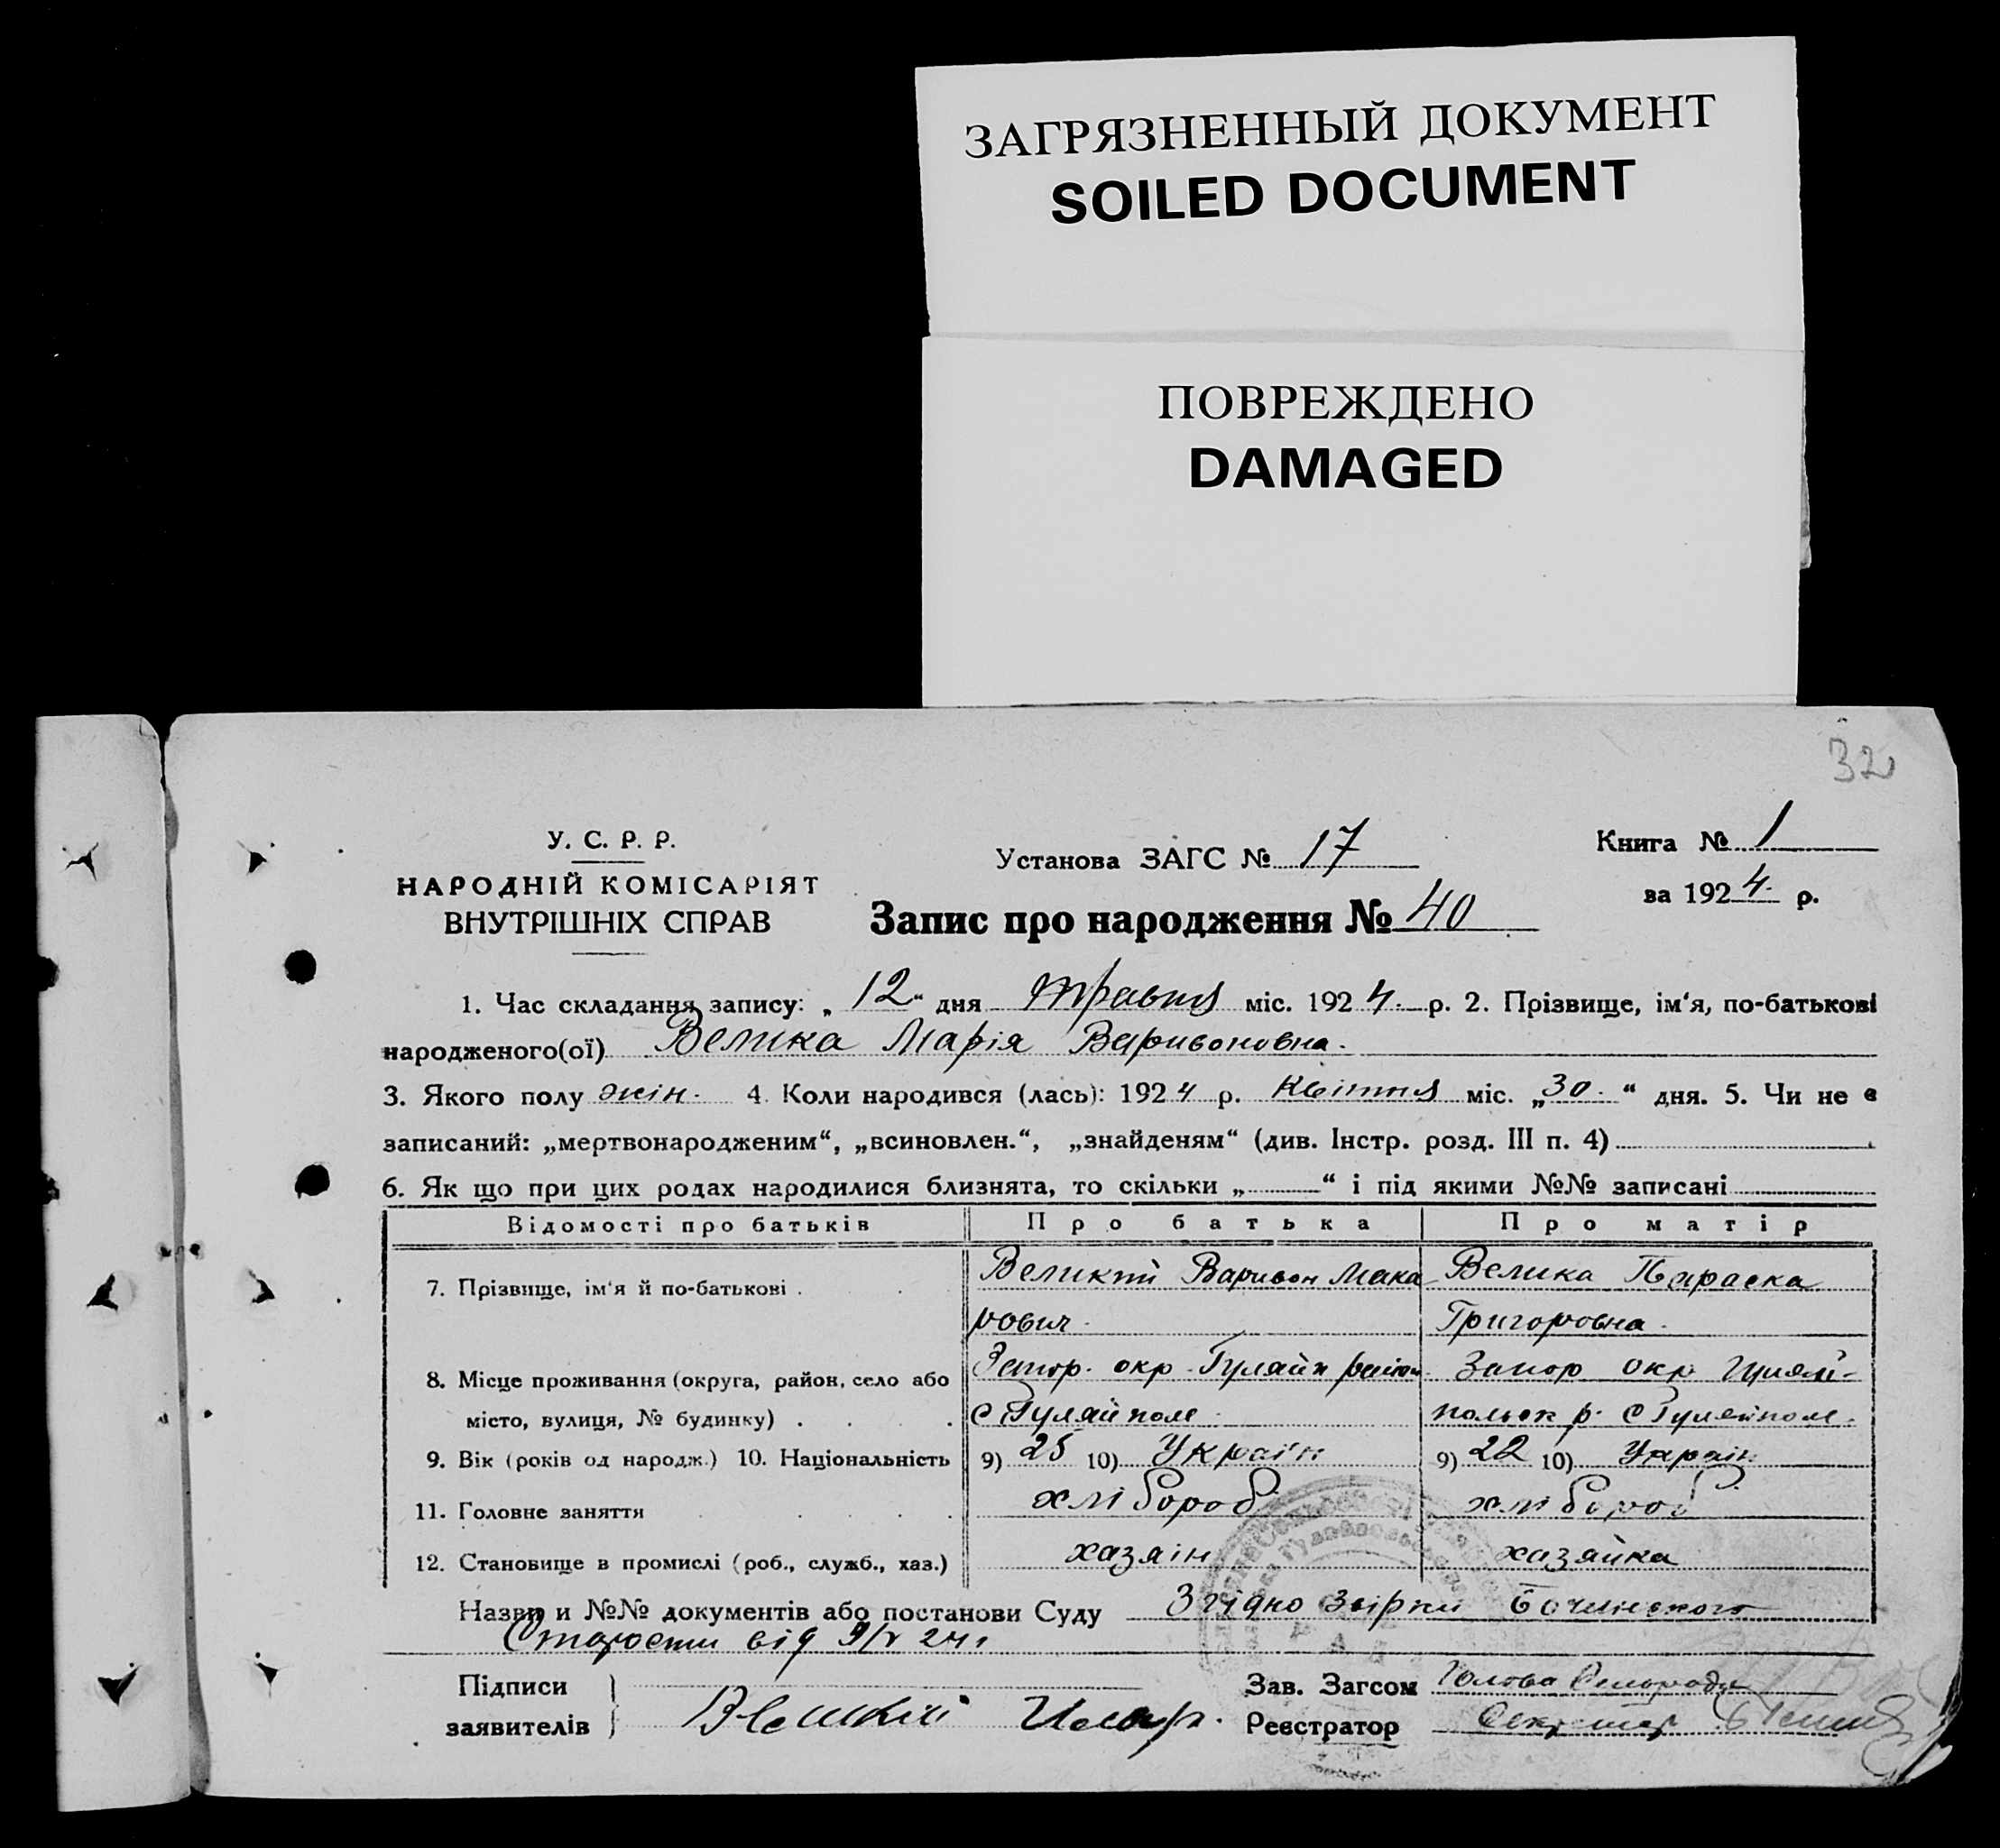 ЗАГРЯЗНЕННЫЙ ДОКУМЕНТ
SOILED DOCUMENT
ПОВРЕЖДЕНО
DAMAGED
32
У. С. Р. Р.
НАРОДНІЙ КОМІСАРІЯТ
ВНУТРІШНІХ СПРАВ
Установа ЗАГС № 17
Книга № 1
за 1924 р.
Запис про народження № 40
1. Час складання запису: „12“ дня травня міс. 1924 р. 2. Прізвище, ім‘я, по-батькові
народженого(ої) Велика Марія Варивоновна.
3. Якого полу жін. 4. Коли народився (лась): 1924 р. квітня міс. „30.“ дня. 5. Чи не є
записаний: „мертвонародженим“, „всиновлен.“, „знайденям“ (див. Інстр. розд. III п. 4)
6. Як що при цих родах народилися близнята, то скільки „ “ і під якими №№ записані
Відомості про батьків Про батька Про матір
7. Прізвище, ім‘я й по-батькові . Великий Варивон Мака Велика Параска
рович. Григоровна.
8. Місце проживання (округа, район, село або Запор. окр. Гуляйп район Запор окр Гуляй-
місто, вулиця, № будинку) . С Гуляйполе польск р. С Гуляйполе.
9. Вік (років од народж.) 10. Національність 9) 25 10) Україн 9) 22 10) Україн
11. Головне заняття хлібороб хлібороб
12. Становище в промислі (роб., служб., хаз.) хазяін хазяйка
Назви и №№ документів або постанови Суду Згідно Звірки
від 24
Підписи
заявителів
Великий
Зав. Загсом Голова Сельради
Реєстратор Секретар